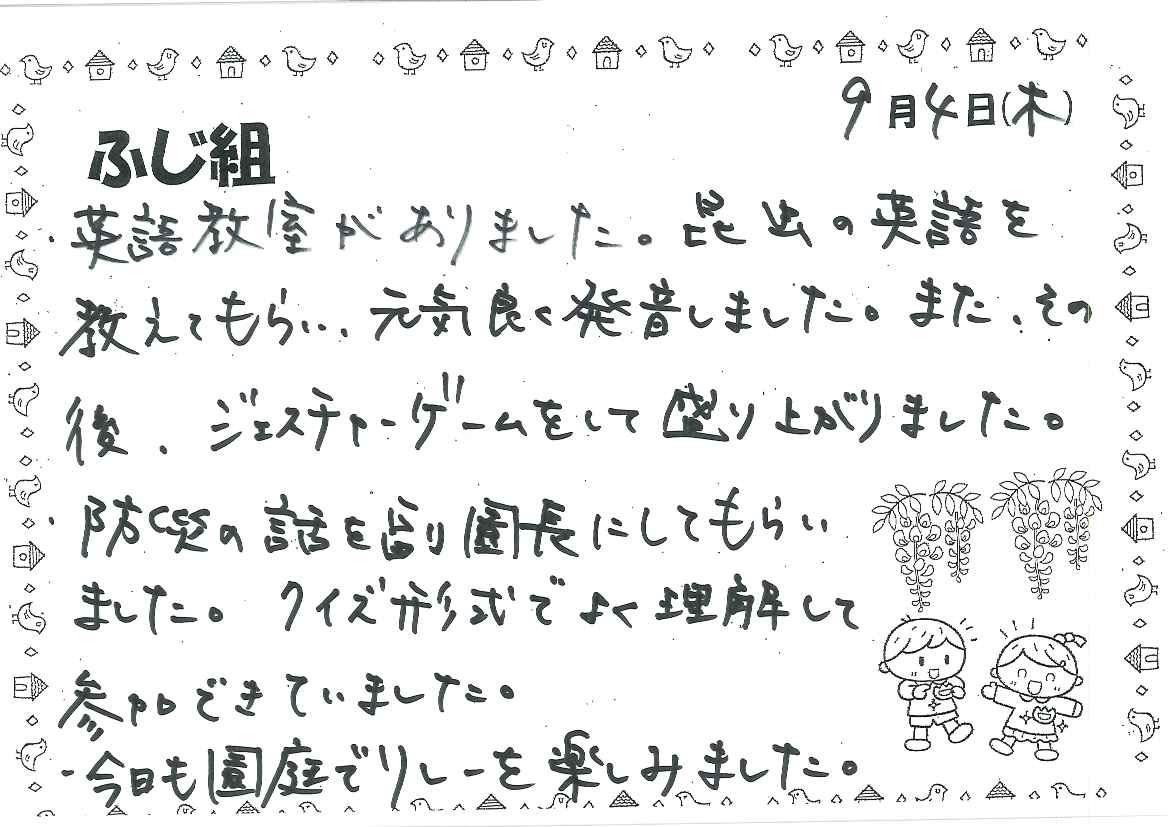 9月4日(木)
ふじ組
・英語教室がありました。昆虫の英語を
教えてもらい、元気良く発音しました。また、その
後、ジェスチャーゲームをして盛り上がりました。
・防災の話を副園長にしてもらい
ました。クイズ形式でよく理解して
参加できていました。
・今日も園庭でリレーを楽しみました。